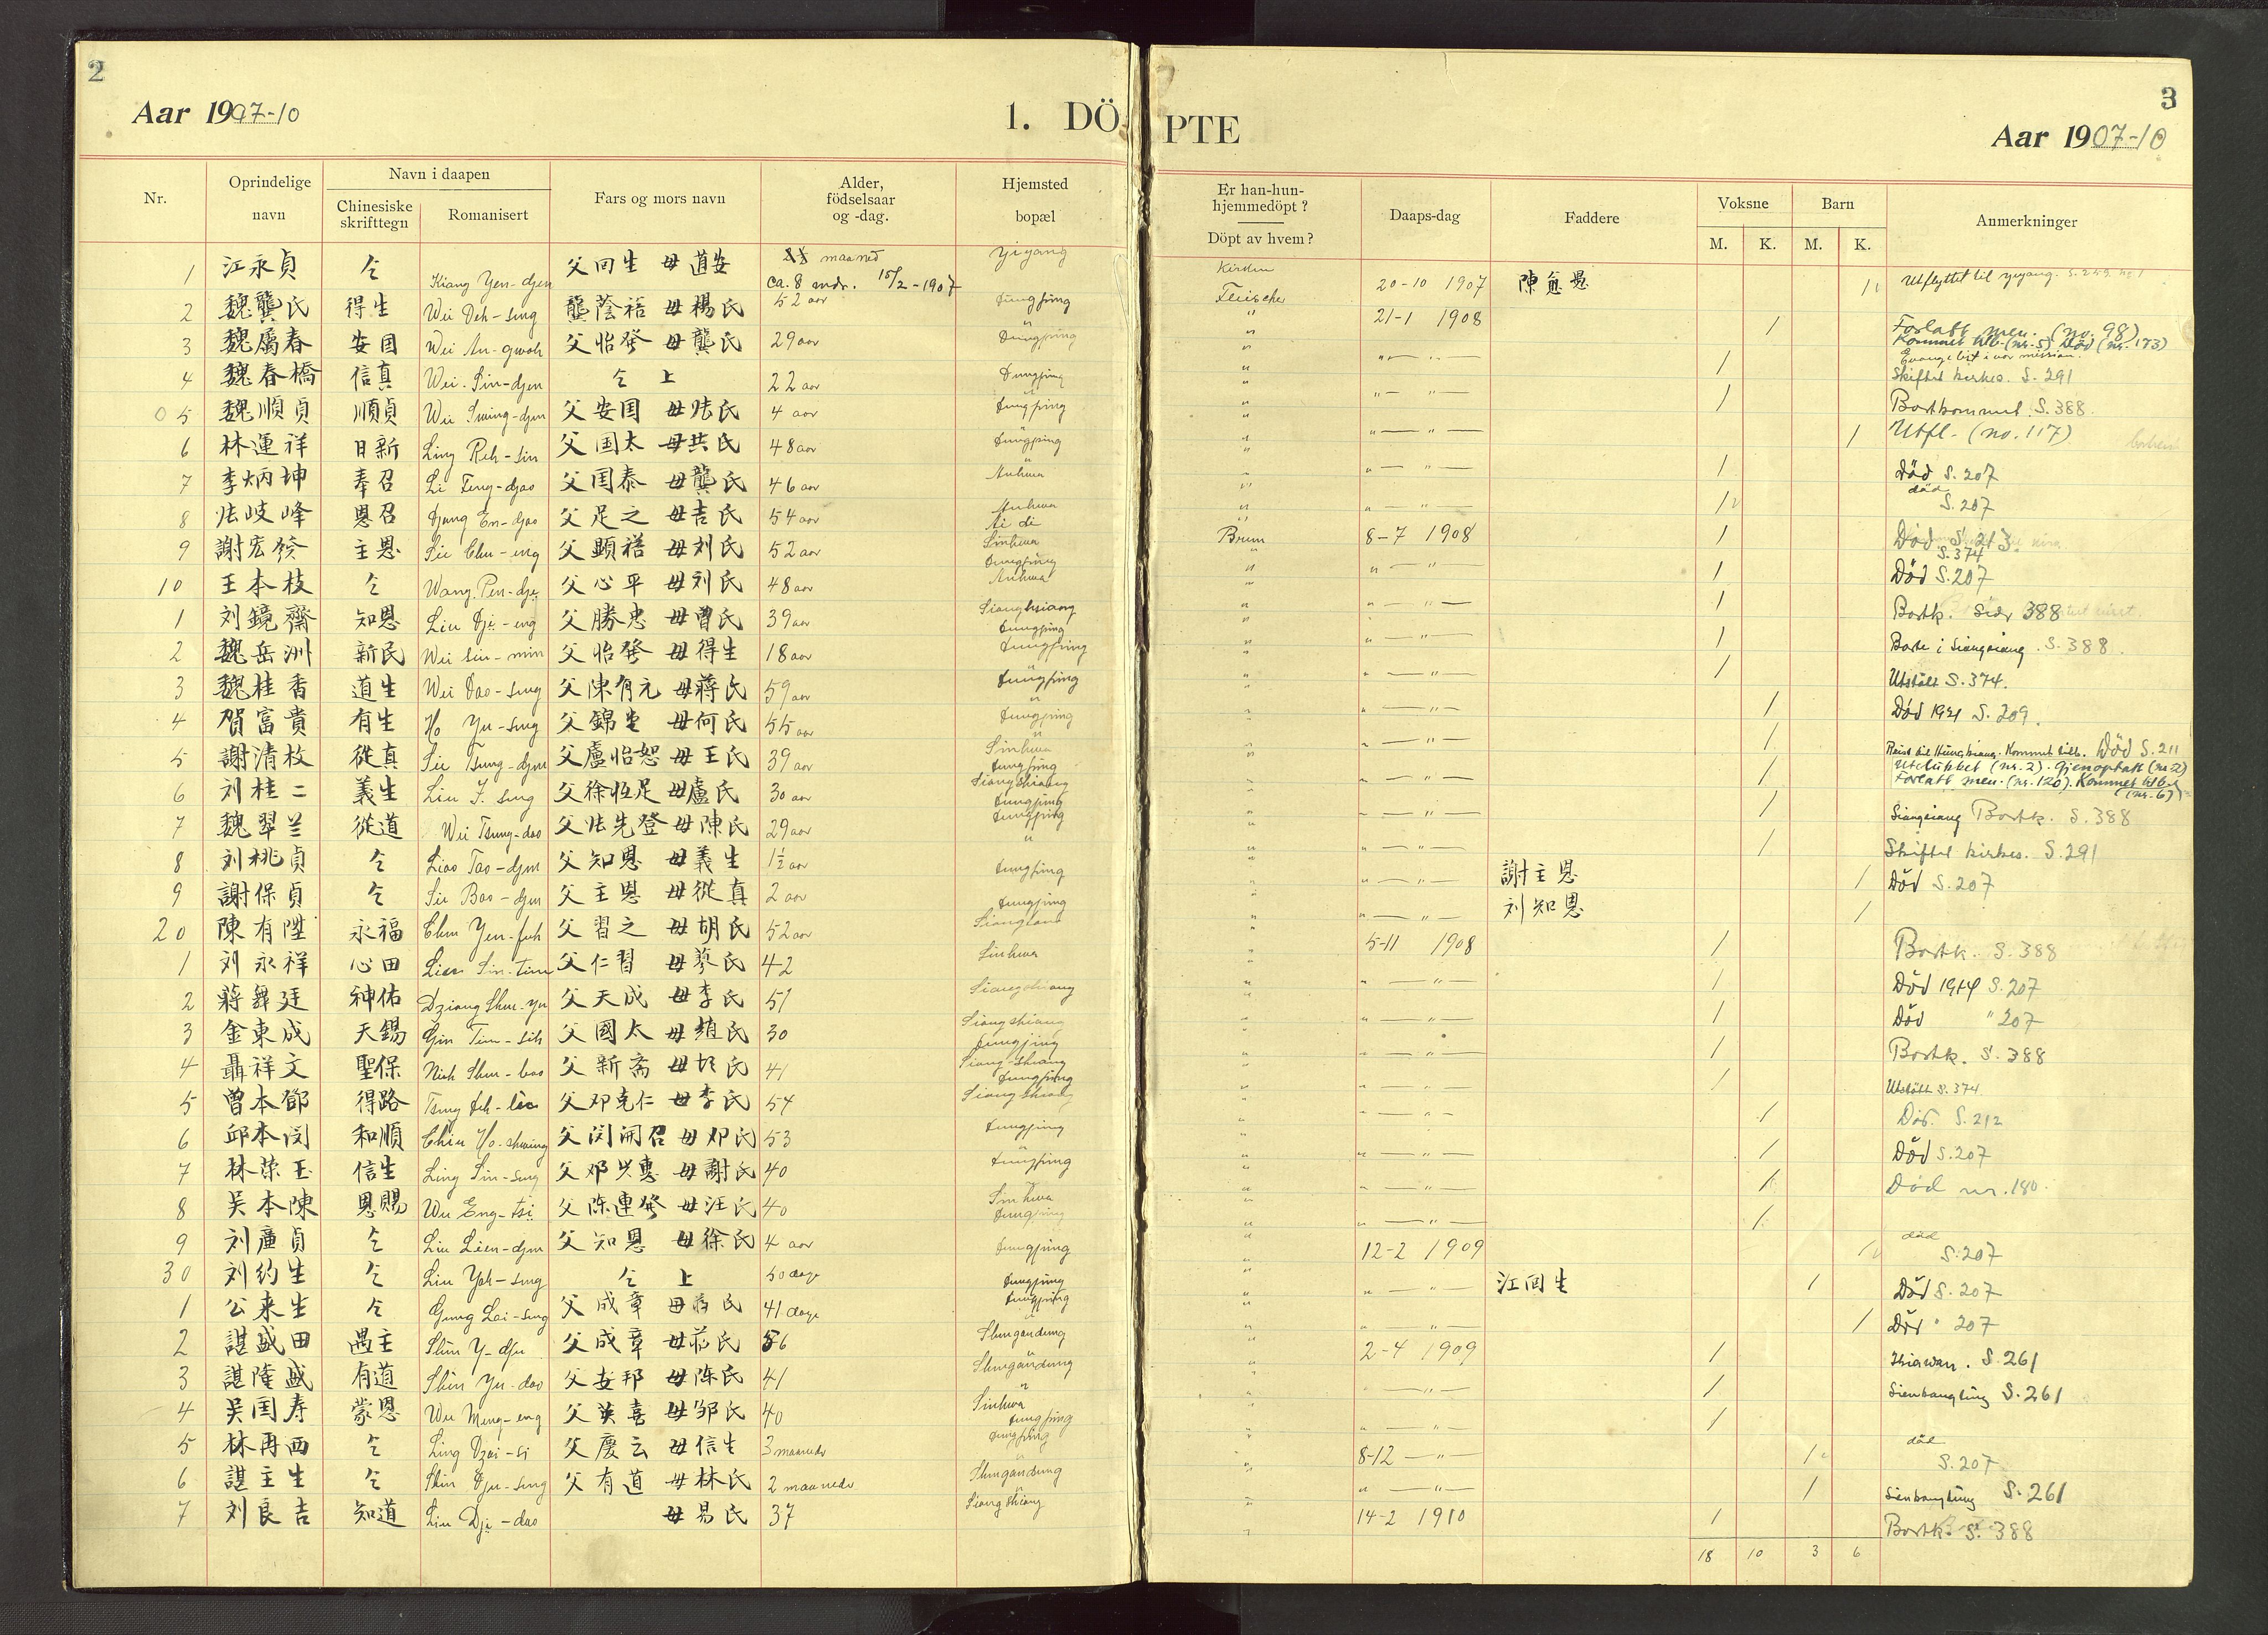 2
Aar 1907-10
1. DÖ
PTE
3
Aar 1907-10
Nr. Oprindelige navn Navn i daapen Chinesiske skrifttegn Romanisert Fars og mors navn Alder, födselsaar og -dag. Hjemsted bopæl
Er han-hun-hjemmedöpt? Döpt av hvem? Daaps-dag Faddere Voksne M. K. Barn M. K. Anmerkninger
1 江永貞 仝 Kiang Yen-djen 父回生 母道安 maaned ca. 8 mdr. 15/2-1907 Yiyang 20-10 1907 1 Utflyttet til yiyang. S. 259 nr 1
2 魏龔氏 得生 Wei Deh-sing 龔蔭禧 母楊氏 52 aar Tungping " 21-1 1908 / Forlatt men. (no. 98)
3 魏屬春 安囯 Wei An-gwoh 父怡發 母龔氏 29 aar Tungping " " — / Evangelist i vor mission.
4 魏春橋 信真 Wei Sin-djen 仝上 22 aar Tungping " " — " — / Skiftet kirkes. S. 291
Bortkommet. S. 388
5 魏順貞 順貞 Wei Swing-djen 父安囯 母張氏 4 aar Tungping " " — " — / Utfl. (no. 117)
6 林運祥 日新 Ling Reh-sin 父囯太 母共氏 48 aar Tungping " " — " — / Död S. 207
7 李炳坤 奉召 Li Feng-djao 父囯泰 母龔氏 46 aar Anhwa " " — " — / död S. 207
8 張岐峰 恩召 Djang En-djao 父足之 母吉氏 54 aar Anhwa " 8-7 1908 / Död S. 213
9 謝宏發 主恩 Sie Chu-eng 父顕禧 母刘氏 52 aar Sinhwa Tungping " " — " — / S. 374 Död S. 207
10 王本枝 仝 Wang Pen-dje 父心平 母刘氏 48 aar Anhwa " " — " — / Bortk. Side 388
1 刘鏡齋 知恩 Liu Dji-eng 父勝忠 母曾氏 39 aar Sianghsiang Tungping " " — " — / Borte i Siangsiang. S. 388
2 魏岳洲 新民 Wei Sin-min 父怡發 母得生 18 aar Tungping " " — " — / Utstött S. 374.
3 魏桂香 道生 Wei Dao-sing 父陳有元 母蔣氏 59 aar Tungping " " — " — / Död 1921 S. 209.
4 賀富貴 有生 Ho Yu-sing 父錦堂 母何氏 55 aar Tungping " " — " — / Död S. 211
5 謝清枚 從真 Sie Tsung-djen 父盧怡恕 母王氏 39 aar Sinhwa Tungping " " — " — / Utelukket (nr. 2). Gjenoptatt (nr. 2) Forlatt men. (nr. 120). Kommet tilb. (nr. 6)
6 刘桂二 義生 Liu I-sing 父徐恆足 母盧氏 30 aar Siangshiang Tungping " " — " — / Siangsiang Bortk. S. 388
7 魏翠兰 從道 Wei Tsung-dao 父張先登 母陳氏 29 aar Tungping " " — " — / Skiftet kirkes. S. 291
8 刘桃貞 仝 Liao Tao-djen 父知恩 母義生 1½ aar Tungping " " — " — 謝主恩 / Död S. 207
9 謝保貞 仝 Sie Bao-djen 父主恩 母從真 2 aar Tungping " " — " — 刘知恩 /
20 陳有陞 永福 Chen Yen-fuh 父習之 母胡氏 52 aar Siangtan " 5-11 1908 / Bortk. S. 388
1 刘永祥 心田 Lieo Sin-tien 父仁習 母蓼氏 42 Sinhwa " " — " — / Död 1914 S. 207
2 蔣舞廷 神佑 Dziang Shen-yu 父天成 母李氏 51 Siangshiang " " — " — / Död " 207
3 金東成 天錫 Gin Tien-sih 父國太 母趙氏 30 Siangshiang Tungping " " — " — / Bortk. S. 388
4 聶祥文 聖保 Nieh Shen-bao 父新斋 41 Siang-shiang Tungping " " — " — / Utstött S. 374
5 曾本鄧 得路 Tseng Deh-lu 父邓克仁 母李氏 54 Siangshiang " " — " — / Död. S. 212
6 邱本闵 和順 Chiu Ho-shwing 父闵開召 母邓氏 53 Tungping " " — " — / Död S. 207
7 林荣玉 信生 Ling Sin-sing 父邓興惠 母謝氏 40 Tungping " " — " — / Död nr. 180.
8 吴本陳 恩賜 Wu Eng-tsi 父陈連發 母汪氏 40 Sinhwa Tungping " " — " — /
9 刘廉貞 仝 Liu Lien-djen 父知恩 母徐氏 4 aar Tungping " 12-2 1909 / död S. 207
30 刘約生 仝 Liu Yoh-sing 仝上 50 dage Tungping " " — " — 江囘生 / Död S. 207
1 公来生 仝 Gung Lai-sing 父成章 母蒋氏 41 dage Tungping " " — " — / Död " 207
2 諶盛田 遇主 Shen Y-dju 父成章 母蒋氏 56 Shengandung 2-4 1909 / Hsiawan. S. 261
3 諶隆盛 有道 Shen Yu-dao 父安邦 母陈氏 41 Shengandung " — " — / Sienbangling S. 261
4 吴囯寿 蒙恩 Wu Meng-eng 父英喜 母邹氏 40 Sinhwa Tungping " " — " — /
5 林再西 仝 Ling Dzai-si 父慶云 母信生 3 maaneder Tungping " 8-12 — " — / död S. 207
6 諶主生 仝 Shen Dju-sing 父有道 母林氏 2 maaneder Shengandung " " — " — / Sienbangling S. 261
7 刘良吉 知道 Liu Dji-dao 母易氏 37 Siangshiang " 14-2 1910 / Bortk. S. 388
18 10 3 6